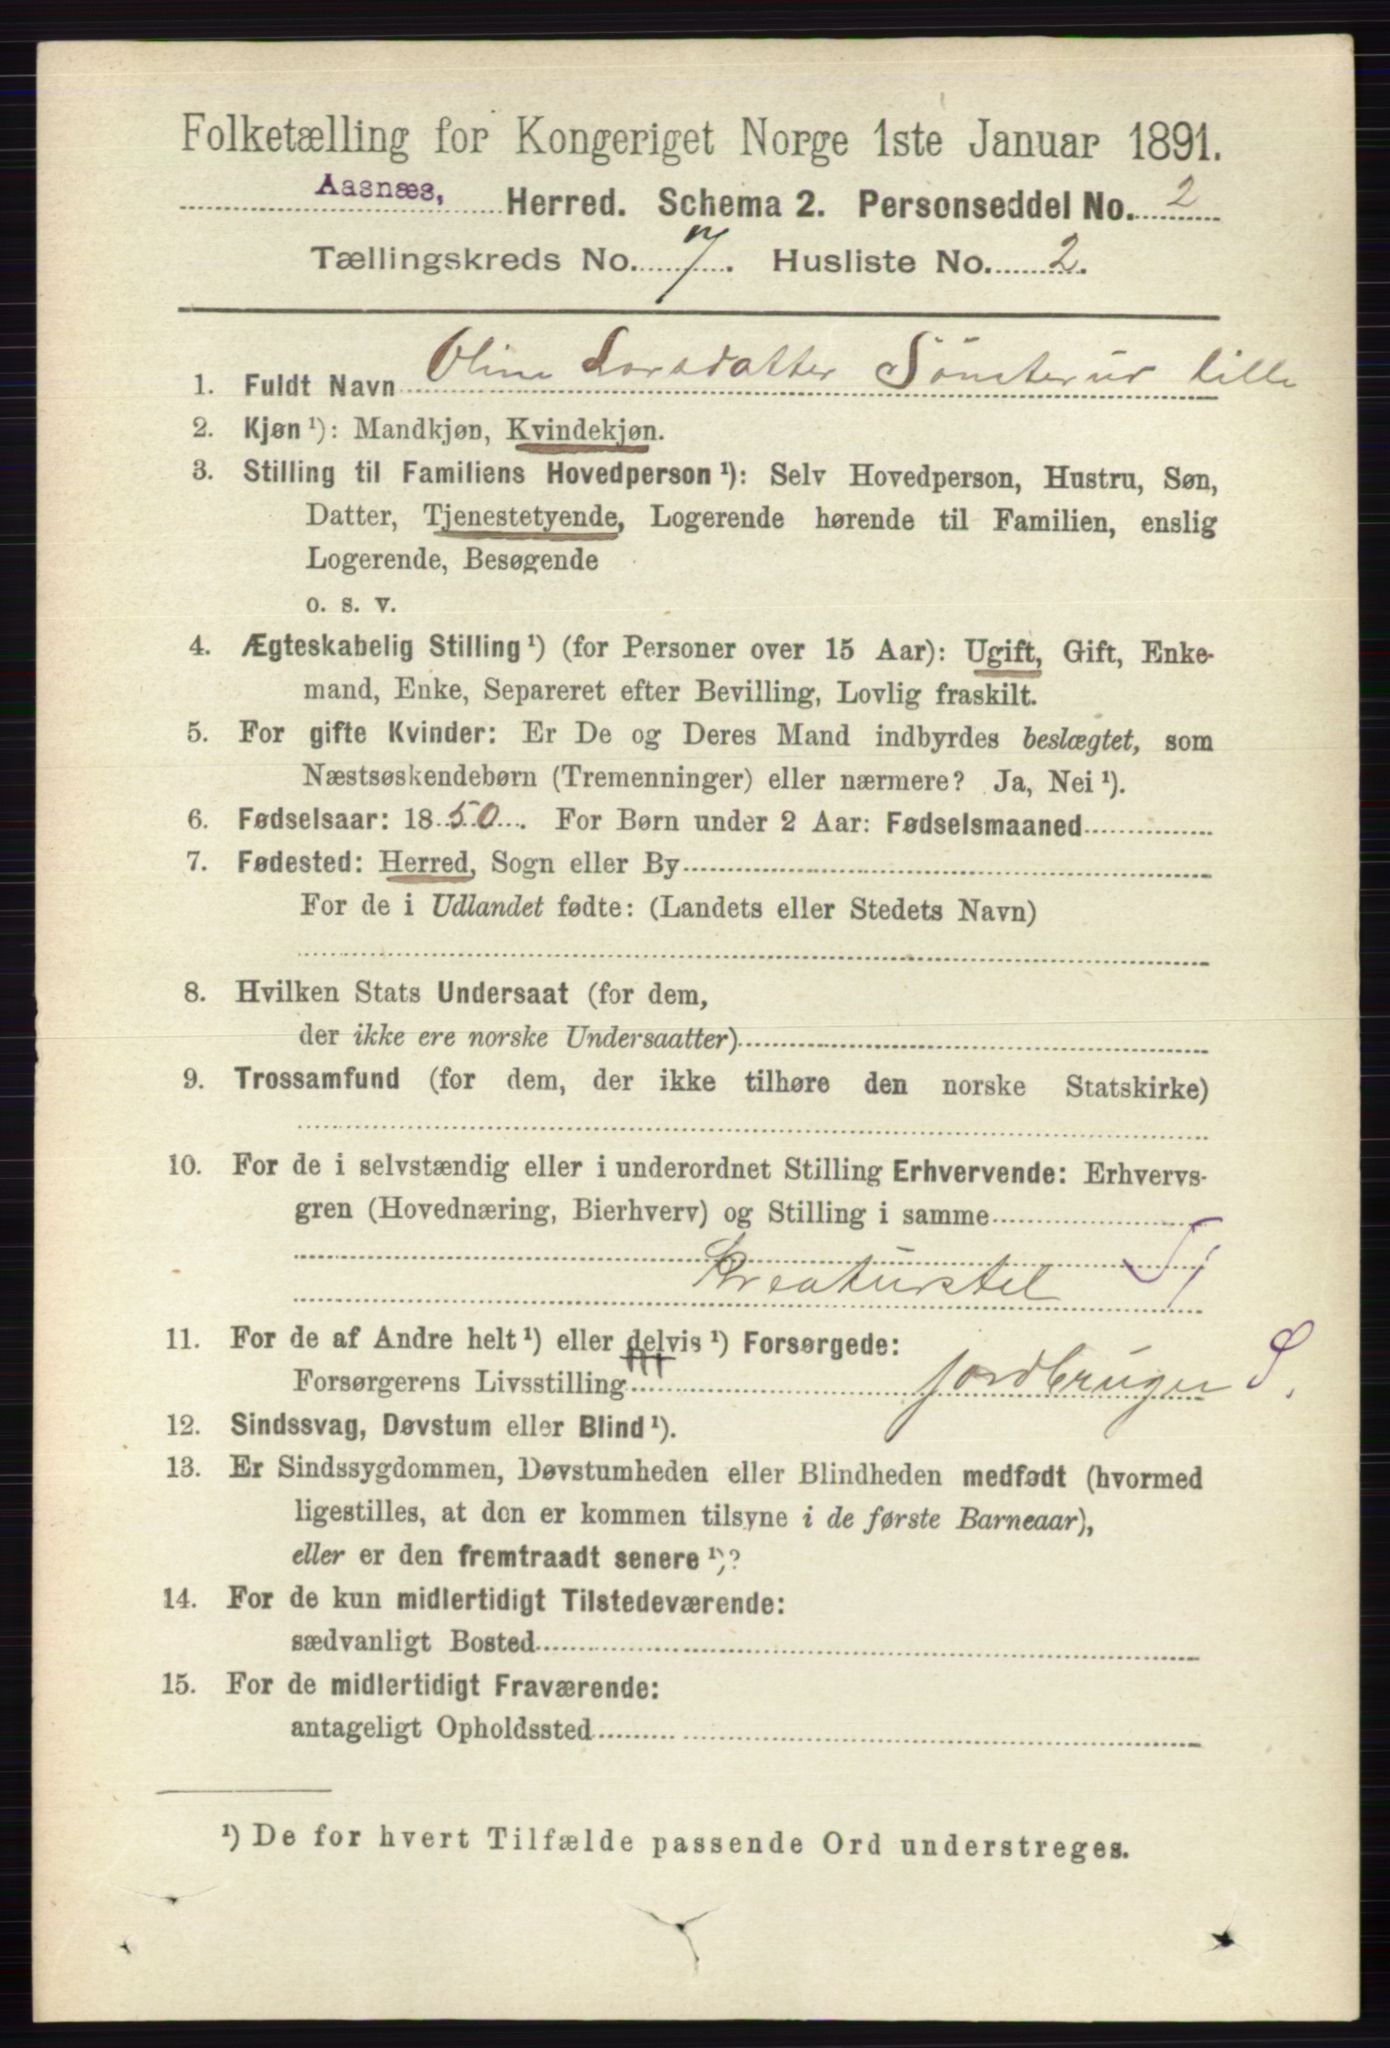 Folketælling for Kongeriget Norge 1ste Januar 1891.
Aasnæs, Herred. Schema 2. Personseddel No. 2
Tællingskreds No. 7. Husliste No. 2.
1. Fuldt Navn Oline Larsdatter Sönsterud lille
2. Kjøn ¹): Mandkjøn, Kvindekjøn.
3. Stilling til Familiens Hovedperson ¹): Selv Hovedperson, Hustru, Søn,
Datter, Tjenestetyende, Logerende hørende til Familien, enslig
Logerende, Besøgende
o. s. v.
4. Ægteskabelig Stilling ¹) (for Personer over 15 Aar): Ugift, Gift, Enke-
mand, Enke, Separeret efter Bevilling, Lovlig fraskilt.
5. For gifte Kvinder: Er De og Deres Mand indbyrdes beslægtet, som
Næstsøskendebørn (Tremenninger) eller nærmere? Ja, Nei ¹).
6. Fødselsaar: 1850. For Børn under 2 Aar: Fødselsmaaned
7. Fødested: Herred, Sogn eller By
For de i Udlandet fødte: (Landets eller Stedets Navn)
8. Hvilken Stats Undersaat (for dem,
der ikke ere norske Undersaatter)
9. Trossamfund (for dem, der ikke tilhøre den norske Statskirke)
10. For de i selvstændig eller i underordnet Stilling Erhvervende: Erhvervs-
gren (Hovednæring, Bierhverv) og Stilling i samme
Kreaturstel Tj
11. For de af Andre helt ¹) eller delvis ¹) Forsørgede:
Forsørgerens Livsstilling Jordbruger S.
12. Sindssvag, Døvstum eller Blind ¹).
13. Er Sindssygdommen, Døvstumheden eller Blindheden medfødt (hvormed
ligestilles, at den er kommen tilsyne i de første Barneaar),
eller er den fremtraadt senere ¹)?
14. For de kun midlertidigt Tilstedeværende:
sædvanligt Bosted
15. For de midlertidigt Fraværende:
antageligt Opholdssted
¹) De for hvert Tilfælde passende Ord understreges.